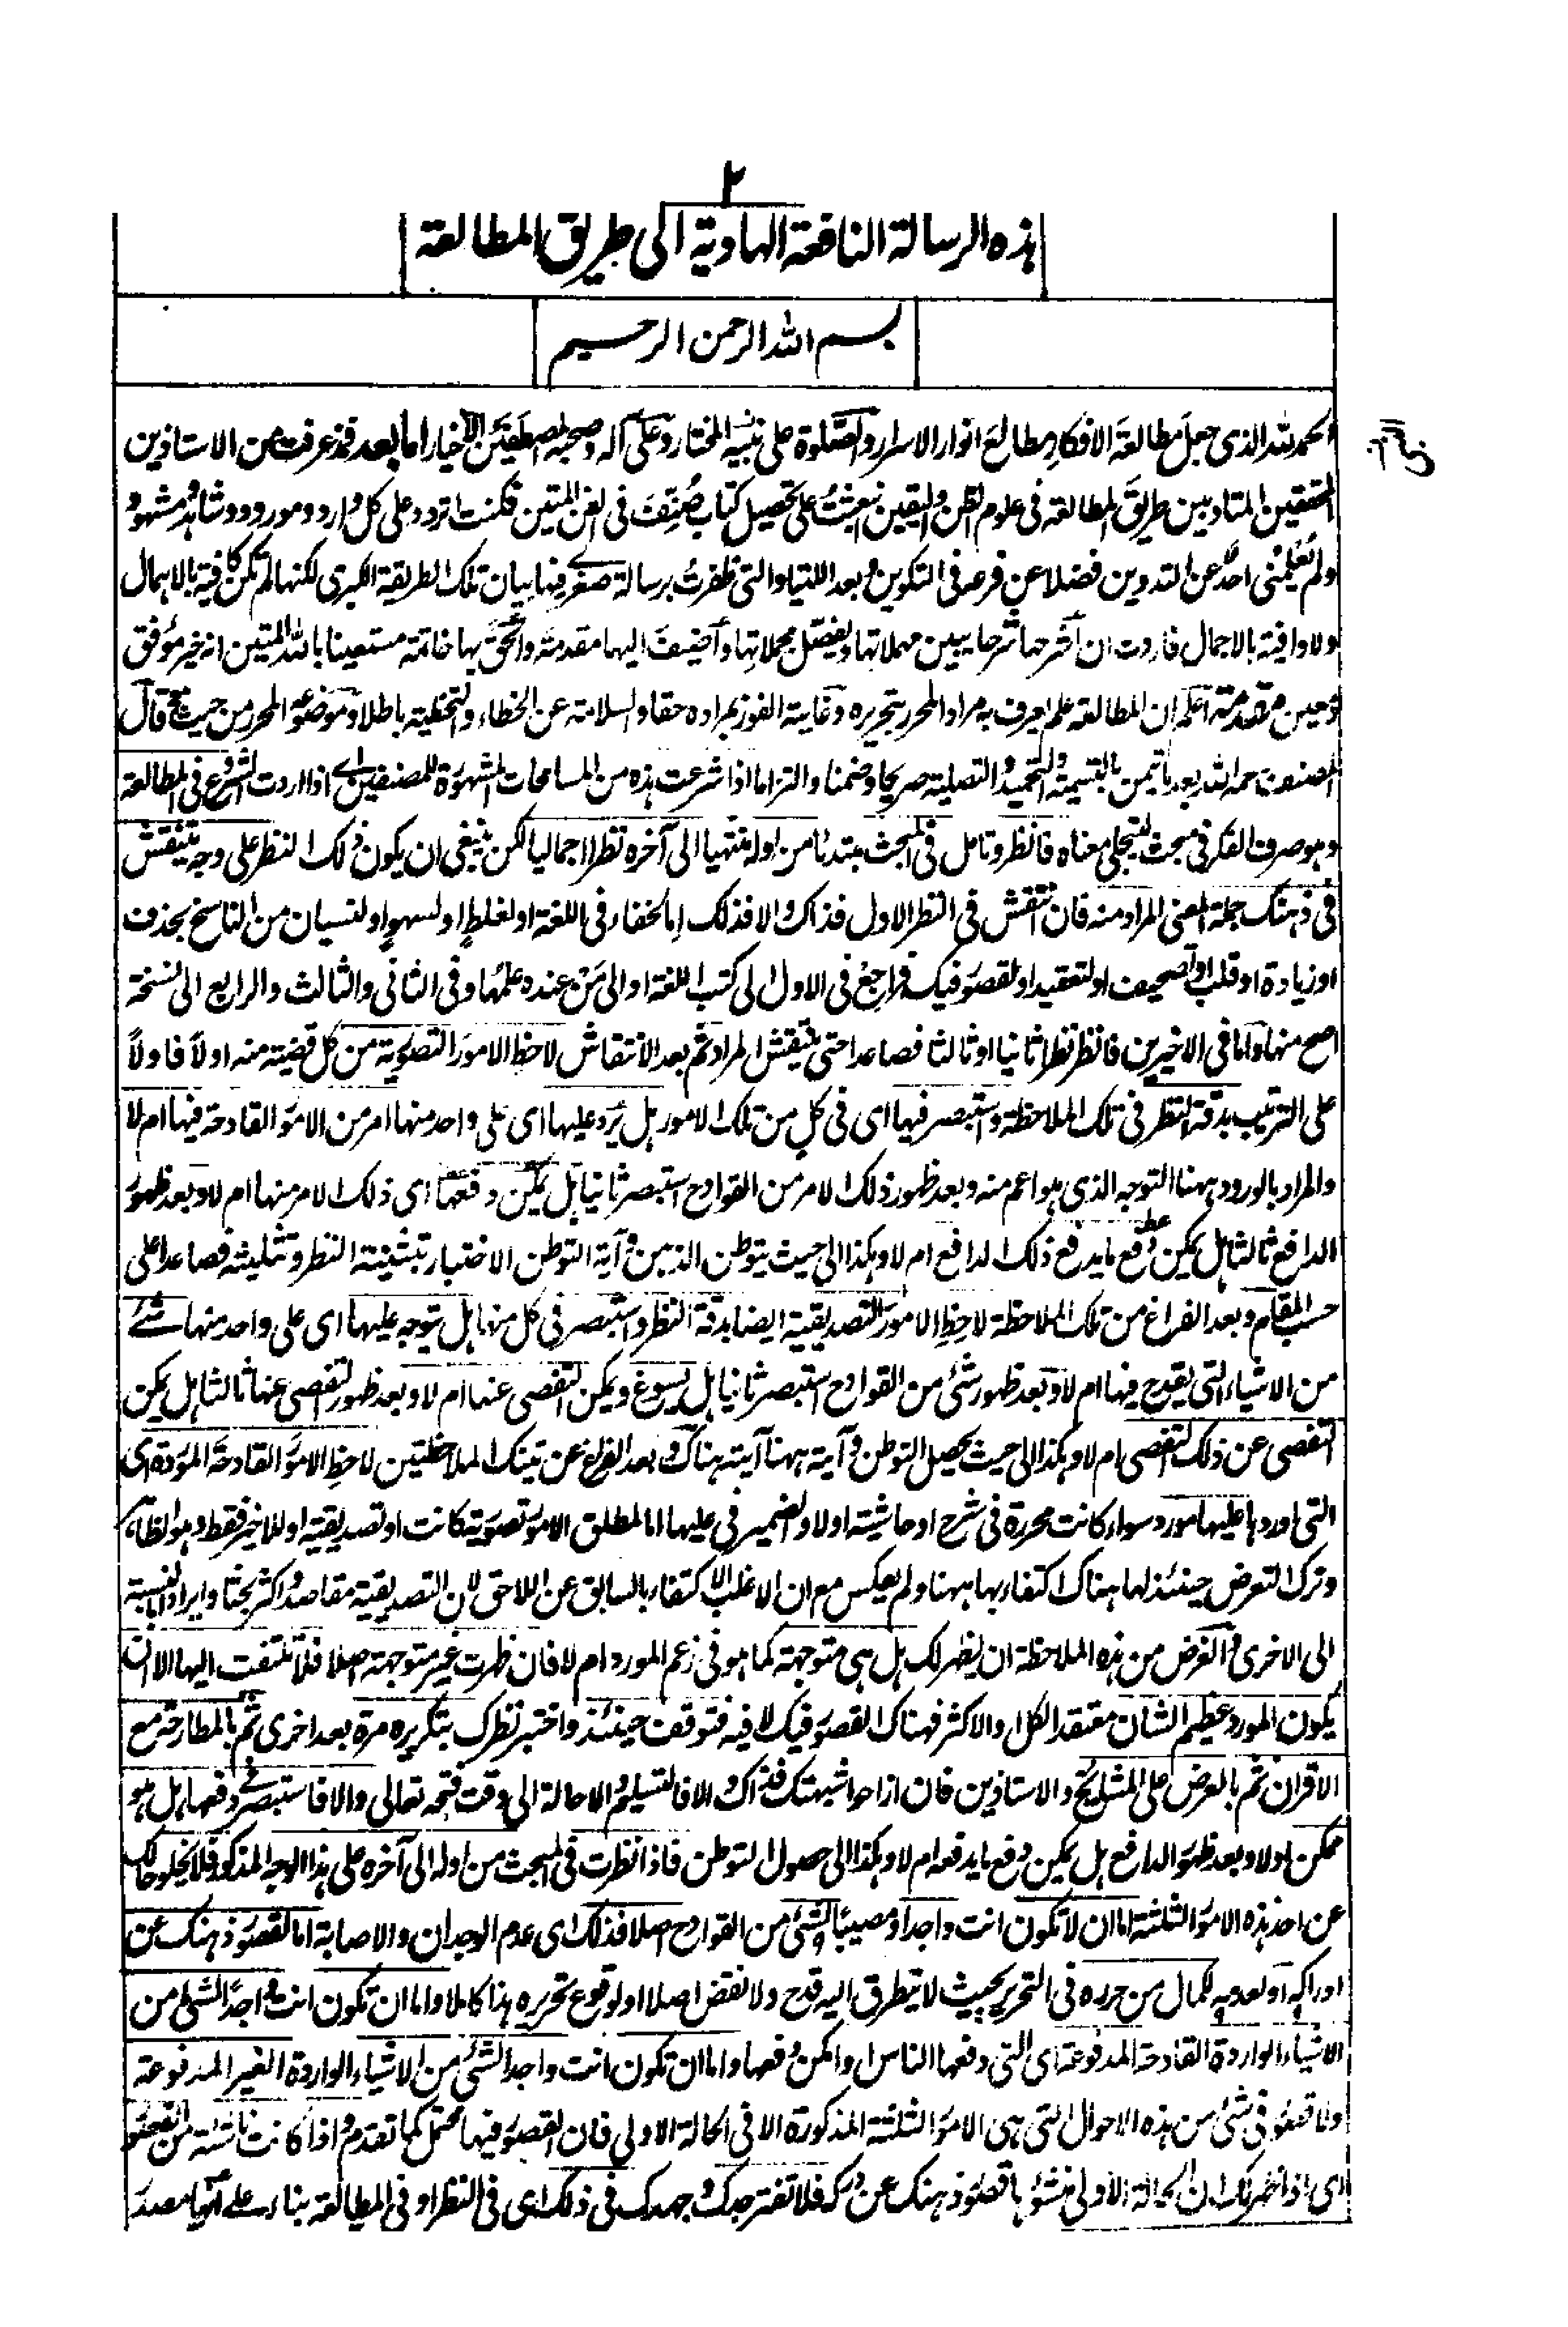 ٢
هذه الرسالة النافعة الهادية الى طريق المطالعة
بسم الله الرحمن الرحيم
الحمد لله الذى جعل مطالعة الافكار مطالع انوار الاسرار والصلوة على نبيه المختار وعلى آله وصحبه المصطفين الاخيار اما بعد قد عرفت من الاستاذين
المحققين المتادبين طريق المطالعة فى علوم الظن واليقين فبعثت على تحصيل كتاب صنف فى الفن المتين فكنت اتردد على كل وارد ومورود وشاهد ومشهود
ولم يعلمنى احد عن التدوين فضلا عن فرصه فى التكوين وبعد اللتيا والتى ظفرت برسالة صغرى فيها بيان تلك الطريقة الكبرى لكنها لم تكن كافية بالاهمال
ولا وافية بالاجمال فاردت ان اشرحها شرحا يبين مهملاتها ويفصل مجملاتها واضيف اليها مقدمة والحق بها خاتمة مستعينا بالله المتين انه خير موفق
ومعين مقدمة اعلم ان المطالعة علم يعرف به مراد المحرر بتحريره وغايته الفوز بمراده حقا والسلامة عن الخطاء والتخطية باطلا وموضوعه المحرر من حيث هو قال
المصنف رحمه الله بعد ما تيمن بالتسمية والتحميد والتصلية صريحا وضمنا والتزاما اذا شرعت هذه من المسامحات المشهورة للمصنفين اى اذا اردت الشروع فى المطالعة
وهو صرف الفكر فى مبحث ليتجلى معناه فانظر وتامل فى المبحث مبتدئا من اوله منتهيا الى آخره نظرا اجماليا لكن ينبغى ان يكون ذلك النظر على وجه ينتقش
فى ذهنك جملة المعنى المراد منه فان انتقش فى النظر الاول فذاك والا فذلك اما لخفاء فى اللغة او لغلط او لسهو او لنسيان من الناسخ بحذف
او زيادة او قلب او تصحيف او لتعقيد او لقصور فيك فراجع فى الاول الى كتب اللغة او الى من عنده علمها وفى الثانى والثالث والرابع الى نسخة
اصح منها واما فى الاخيرين فانظر نظرا ثانيا او ثالثا فصاعدا حتى ينتقش المراد ثم بعد الانتقاش لاحظ الامور التصورية من كل قضية منه اولا فاولا
على الترتيب بدقة النظر فى تلك الملاحظة واستبصر فيها اى فى كل من تلك الامور هل يرد عليها اى على واحد منها امر من الامور القادحة فيها ام لا
والمراد بالورود ههنا التوجه الذى هو اعم منه وبعد ظهور ذلك الامر من القوادح استبصر ثانيا هل يمكن دفعها اى ذلك الامر منها ام لا وبعد ظهور
الدافع ثالثا هل يمكن دفع ما يدفع ذلك الدافع ام لا وهكذا الى حيث يتوطن الذهن وآية التوطن الاختبار بتثنية النظر وتثليثه فصاعدا على
حسب المقام وبعد الفراغ من تلك الملاحظة لاحظ الامور التصديقية ايضا بدقة النظر واستبصر فى كل منها هل يتوجه عليها اى على واحد منها شئ
من الاشياء التى يقدح فيها ام لا وبعد ظهور شئ من القوادح استبصر ثانيا هل يسوغ ويمكن التفصى عنها ام لا وبعد ظهور التفصى عنها ثالثا هل يمكن
التفصى عن ذلك التفصى ام لا وهكذا الى حيث يحصل التوطن وآيته ههنا آيته هناك وبعد الفراغ عن تينك الملاحظتين لاحظ الامور القادحة الموردة اى
التى اوردها عليها مورد سواء كانت محررة فى شرح او حاشية اولا والضمير فى عليها اما لمطلق الامور تصورية كانت او تصديقية او للاخير فقط وهو الظاهر
وترك التعرض حينئذ لها هناك اكتفاء بها ههنا ولم يعكس مع ان الاغلب الاكتفاء بالسابق عن اللاحق لان التصديقية مقاصد واكثر بحثا وايرادا بالنسبة
الى الاخرى والغرض من هذه الملاحظة ان يظهر لك هل هى متوجهة كما هو فى زعم المورد ام لا فان ظهرت غير متوجهة اصلا فلا تلتفت اليها الا ان
يكون المورد عظيم الشان معتقد الكل او الاكثر فهناك القصور فيك لا فيه فتوقف حينئذ واختبر نظرك بتكريره مرة بعد اخرى ثم بالمطارحة مع
الاقران ثم بالعرض على المشايخ والاستاذين فان ازاحوا شبهتك فذاك والا فالتسليم والاحالة الى وقت فتحه تعالى والا فاستبصر فى دفعها هل هو
ممكن اولا وبعد ظهور الدافع هل يمكن دفع ما يدفعه ام لا وهكذا الى حصول التوطن فاذا نظرت فى المبحث من اوله الى آخره على هذا الوجه المذكور فلا يخلو حالك
عن احد هذه الامور الثلثة اما ان لا تكون انت واجدا ومصيبا لشئ من القوادح اصلا فذلك اى عدم الوجدان والاصابة اما لقصور ذهنك عن
ادراكه او لعدمه لكمال من حرره فى التحرير بحيث لا يتطرق اليه قدح ولا نقض اصلا او لوقوع تحريره هذا كاملا واما ان تكون انت واجدا لشئ من
الاشياء الواردة القادحة المدفوعة اى التى دفعها الناس او امكن دفعها واما ان تكون انت واجدا لشئ من الاشياء الواردة الغير المدفوعة
ولا قصور فى شئ من هذه الاحوال التى هى الامور الثلثة المذكورة الا فى الحالة الاولى فان القصور فيها محتمل كما تقدم واذا كانت ناشئة من القصور
اى اذا ظهر لك ان الحالة الاولى منشؤها قصور ذهنك عن دركه فلا تفتر جدك وجهدك فى ذلك اى فى النظر او فى المطالعة بناء على انها مصدر